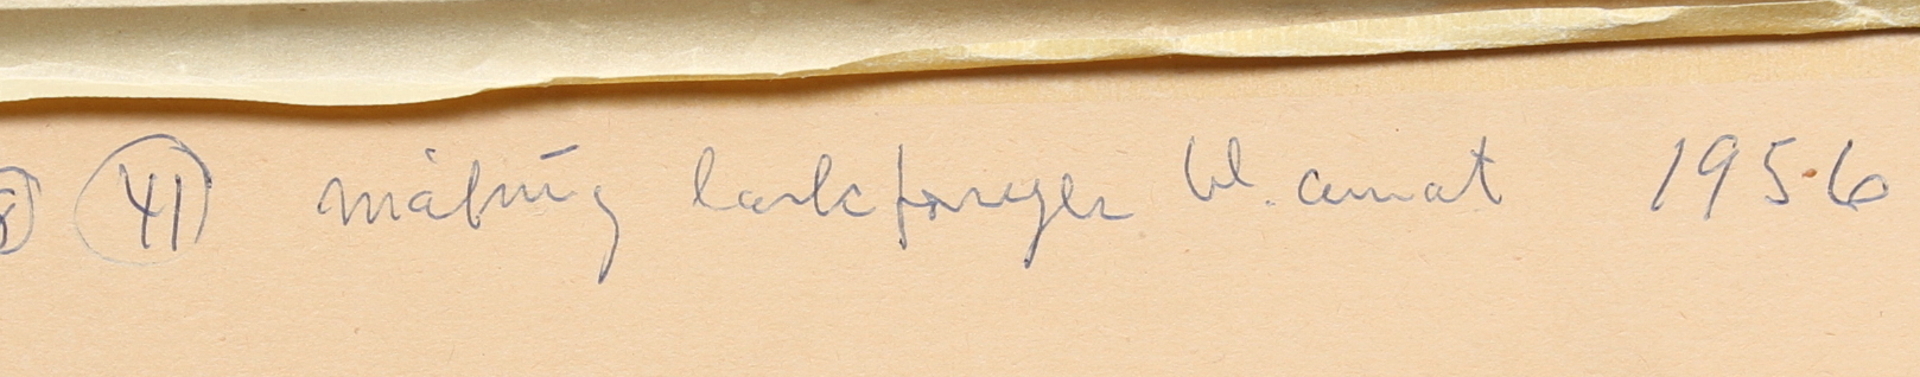 41 målning lackfärger bl. annat 1956